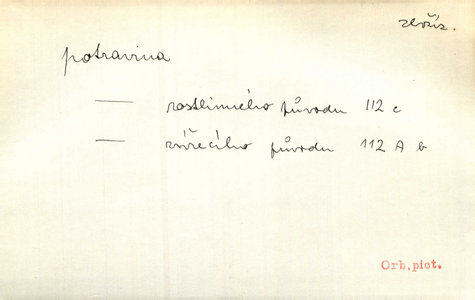 zbožíz.
potravina
— rostlinného původu 112 c
— zvířecího původu 112 A b
Orb.pict.